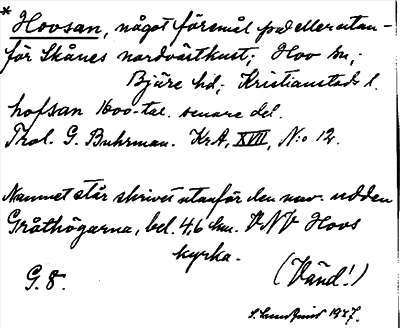 * Hovsan, något föremål på eller utan-
för Skånes nordvästkust; Hov sn;
Bjäre hd; Kristianstads l.
hofsan 1600-tal. senare del.
Trol. G. Buhrman. KrA, XVII, N:o 12.
Namnet står skrivet utanför den nuv. udden
Gråthögarna, bel. 4,6 km. VNV Hovs
kyrka.
G. 8. (Vänd!)
1947.